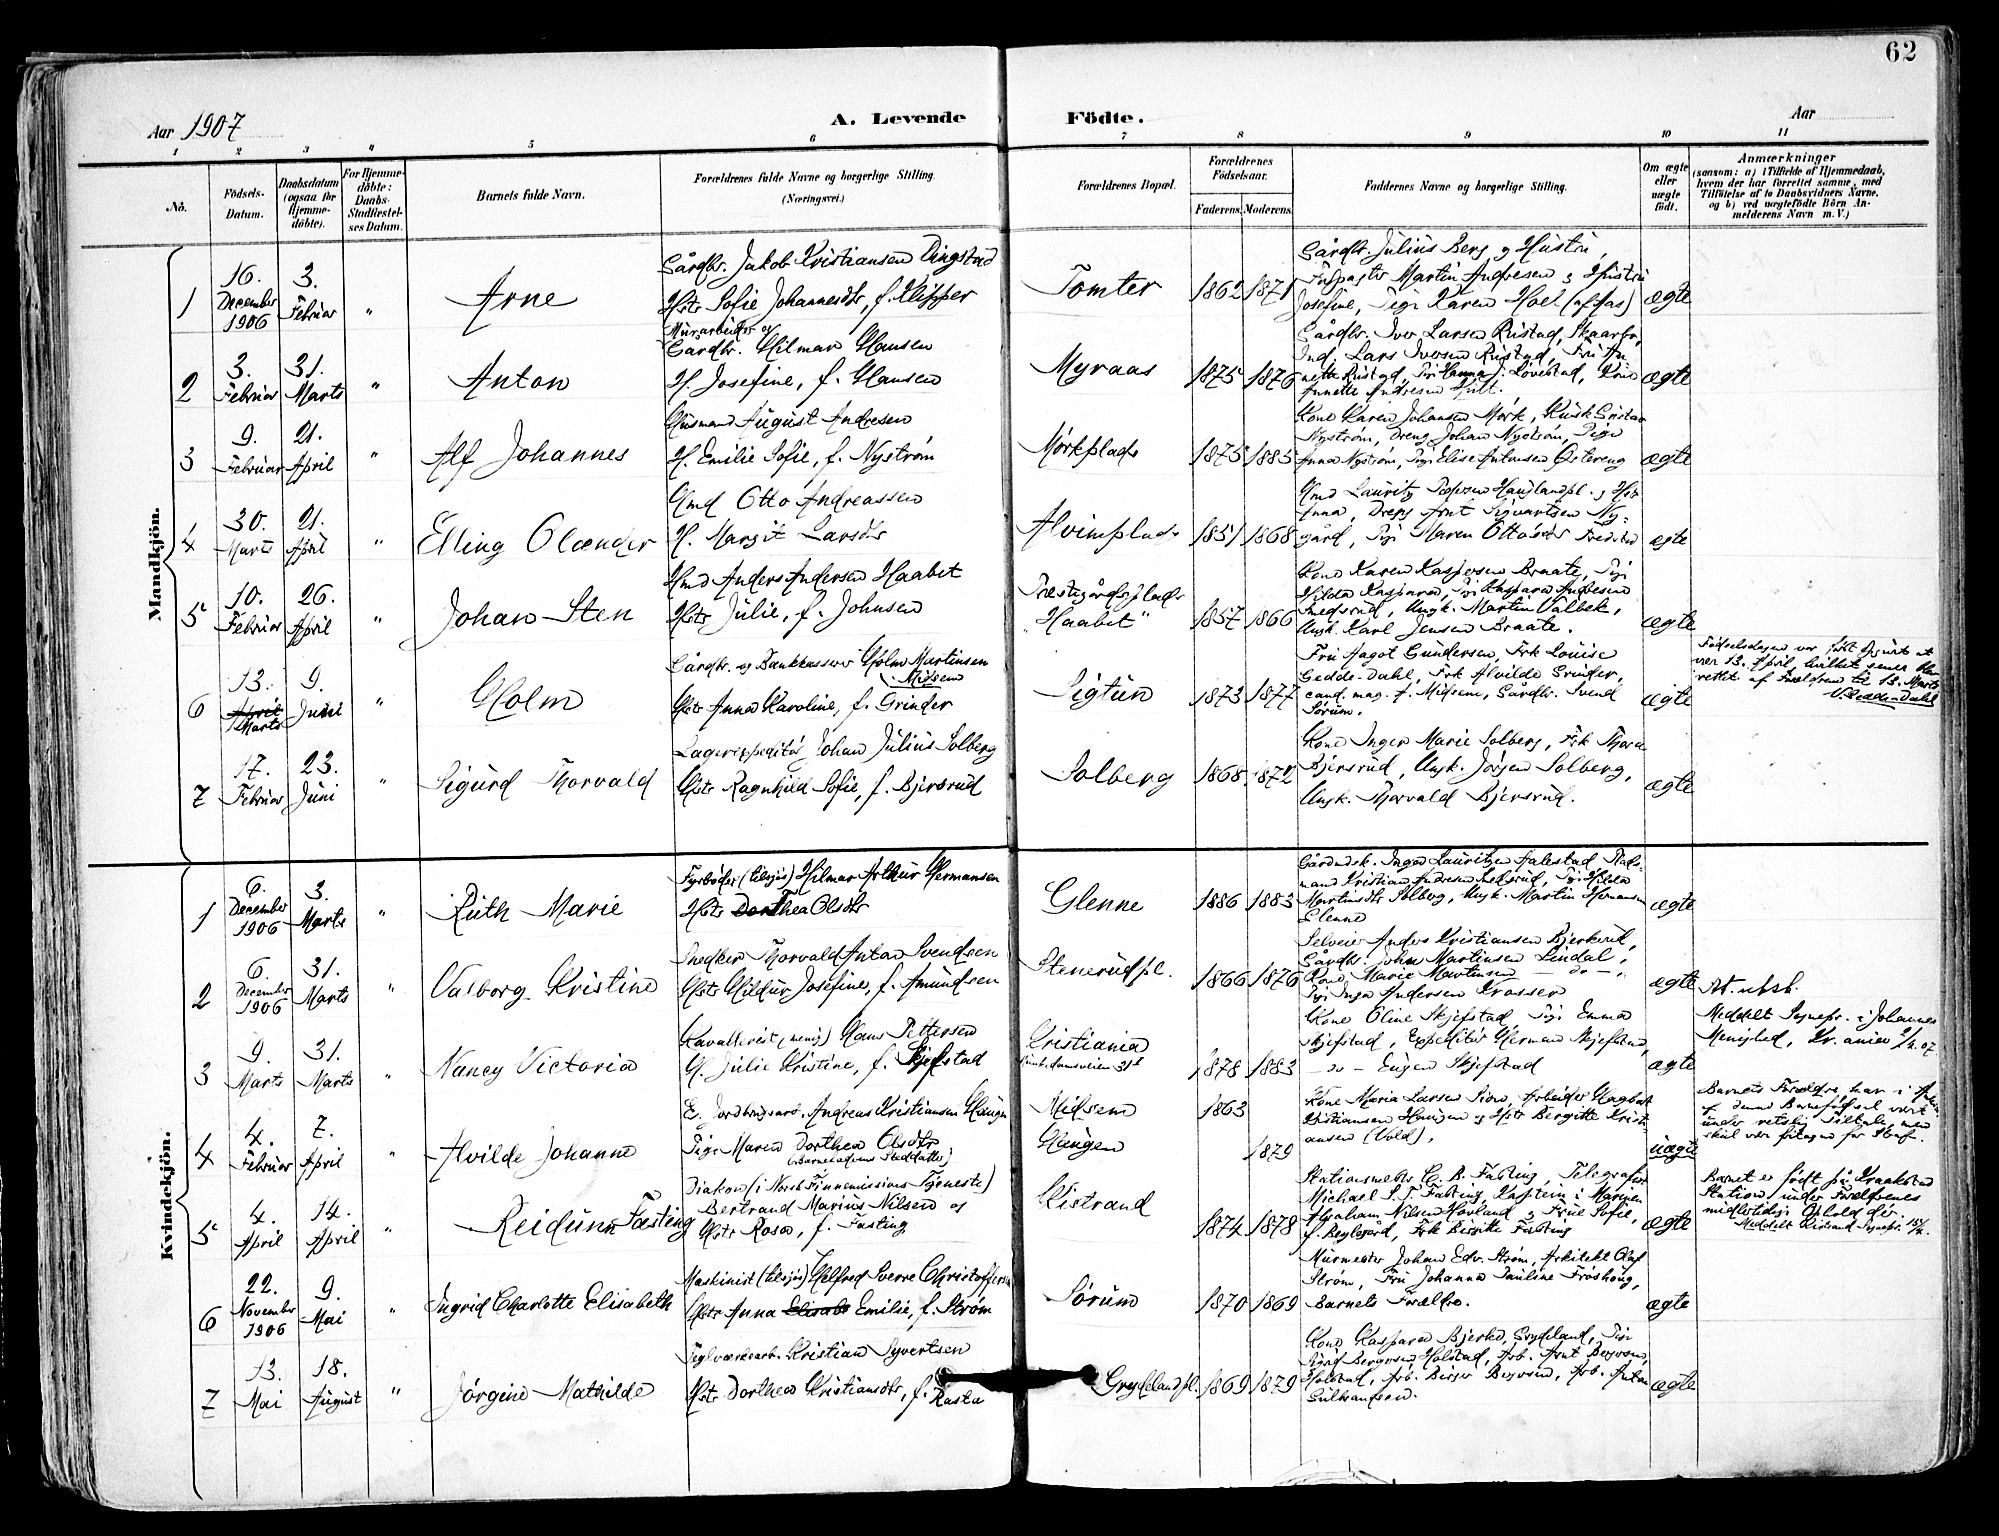 62
Aar 1907
A. Levende Födte.
Aar
1 2 3 4 5 6 7 8 9 10 11
No.
Födsels-Datum.
Daabsdatum (ogsaa for Hjemmedöbte).
For Hjemmedöbte: Daabs-Stadfæstelses Datum.
Barnets fulde Navn.
Forældrenes fulde Navne og borgerlige Stilling. (Næringsvei.)
Forældrenes Bopæl.
Forældrenes Födselsaar.
Faderens.
Moderens.
Faddernes Navne og borgerlige Stilling.
Om ægte eller uægte födt.
Anmærkninger
(saasom: a) i Tilfælde af Hjemmedaab, hvem der har forrettet samme, med Tilföielse af to Daabsvidners Navne, og b) ved uægtefödte Börn Anmelderens Navn m. V.)
Mandkjön.
1
16. December 1906
3. Februar
"
Arne
Gårdbr. Jakob Kristiansen Dingstad
Hstr Sofie Johannesdtr, f. Kipper
Tomter
1862 1871
Gårdbr. Julius Berg og Hustru,
Martin Andresen og Hustru
Josefine, Pige Karen Hoel
ægte
2
3. Februar
31. Marts
"
Anton
Murarbeider og
Gårdbr. Hilmar Hansen
H. Josefine, f. Hansen
Myraas
1875 1876
Gårdbr. Iver Larsen Rustad, Skaarbo,
Ind. Lars Iversen Rustad, Fru An
nette Rustad, Pige Hanna J. Lövestad, Kone
Annette Andresen
ægte
3
9. Februar
21. April
"
Alf Johannes
Husmand August Andresen
H. Emilie Sofie, f. Nyström
Mörkplads
1875 1885
Kone Karen Johansen Mörk, Kusk Gustav
Nyström, Dreng Johan Nyström, Pige
Anna Nyström, Pige Elise Antonsen Östereng
ægte
4
30. Marts
21. April
"
Elling Olænder
Hmd Otto Andreassen
H. Margit Larsdtr
Alvimplads
1851 1868
Hmd Lauritz Pedersen Hauglandpl. og Hstr
Anna, Dreng Arnt Sigvartsen Ny-
gård, Pige Maren Ottosdtr
ægte
5
10. Februar
26. April
"
Johan Sten
Hmd Anders Andersen Haabet
Hstr Julie, f. Johnsen
Prestegårdsplads
"Haabet"
1857 1866
Kone Karen Kaspersen Braate, Pige
Hilda Kaspara, Pige Kaspara Andresen
Ungk. Martin Valbek,
Ungk. Karl Jensen Braate.
ægte
6
13. April Marts
9. Juni
"
Holm
Gårdbr. og Bankkasserer Holm Martinsen
Midsem
Hstr Anna Karoline, f. Grinder
Sigtun
1873 1877
Fru Aagot Gundersen, Frk Louise
Gedde-Dahl, Frk Alvilde Grinder,
cand. mag. P. Midsem, Gårdbr. Svend
Sörum.
ægte
Födselsdagen var först opgivet at
vær 13. April, hvilket senere blev
rettet af Forældrene til 13. Marts
V. Gedde-Dahl
7
17. Februar
23. Juni
"
Sigurd Thorvald
Lagerexpeditör Johan Julius Solberg
Hstr Ragnhild Sofie, f. Bjersrud
Solberg
1868 1872
Kone Inger Marie Solberg, Frk Thora
Bjersrud, Ungk. Jörgen Solberg,
Ungk. Thorvald Bjersrud.
ægte
Kvindekjön.
1
6. December 1906
3. Marts
"
Ruth Marie
Fyrböder (tilsjös) Hilmar Arthur Hermansen
Hstr Dorthea Olsdtr
Glenne
1886 1883
Gårdmdsk. Inga Lauritzen Aalestad, Plads-
mand Kristian Andresen, Pige Hilda
Martinsdtr Solberg, Ungk. Martin Hermansen
Glenne
ægte
2
6. December 1906
31. Marts
"
Valborg Kristine
Snedker Thorvald Anton Svendsen
Hstr Hildur Josefine, f. Amundsen
Stenerudpl.
1866 1876
Selveier Anders Kristiansen Bjerkerud,
Gårdbr. John Martinsen Lindal,
Kone Marie Martinsen - do -,
Pige Inga Andersen Krosser
ægte
At. utst.
3
9. Marts
31. Marts
"
Nancy Victoria
Kavallerist (menig) Hans Pettersen
H. Julie Kristine, f. Skjefstad
Kristiania
1878 1883
Kone Oline Skjefstad, Pige Emma
Skjefstad, Expeditör Herman Skjefstad,
- do - Eugen Skjefstad
ægte
Meddelt Sognepr. i Johannes
Menighed, Kr.ania 2/4 07
4
4. Februar
7. April
"
Alvilde Johanne
E. Jordbrugsarb. Andreas Kristiansen Haugen
Pige Maren Dorthea Olsdtr
(Barnefaderens Steddatter)
Midsem
Haugen
1863
1879
Kone Maria Larsen Sion, Arbeider Hagbart
Kristiansen Haugen og Hstr Bergitte Kristi-
ansen (Vold),
uægte
Barnets Forældre har i
af denne Barnefödsel vært
under retslig Tiltale, men
5
4. April
14. April
"
Reidunn Fasting
Diakon (i Norsk Finnemissions Tjeneste)
Bertrand Marius Nilsen og
Hstr Rosa, f. Fasting
Kistrand
1874 1878
Stationsmester C. B. Fasting, Telegrafist
Michael S. T. Fasting, Kaptein i Marinen
Abraham Nilsen Hovland og Frue Sofie,
Frk Birgitte Fasting
ægte
Barnet er födt på Kraakstad
Station under Forældrenes
midlertidige Ophold der.
Meddelt Kistrand Sognepr. 15/4.
6
22. November 1906
9. Mai
"
Ingrid Charlotte Elisabeth
Maskinist (tilsjös) Helfred Sverre Christoffersen
Hstr Anna Elisabe Emilie, f. Ström
Sörum
1870 1869
Murmester Johan Edv. Ström, Arkitekt Olaf
Ström, Fru Johanna Pauline Fröshoug,
Barnets Forældre.
ægte
7
13. Mai
18. August
"
Jörgine Mathilde
Teglværksarb. Kristian Syvertsen
Hstr Dorthea Kristiansdtr, f. Rasta
Grydelandpl.
1869 1879
Kone Kaspara Bjerke, Grydeland, Pige
Sigrid Bergersen Holstad, Arb. Arnt Bergersen,
Holstad, Arb. Birger Bergersen, Arb. Anton
Gulbrandsen.
ægte